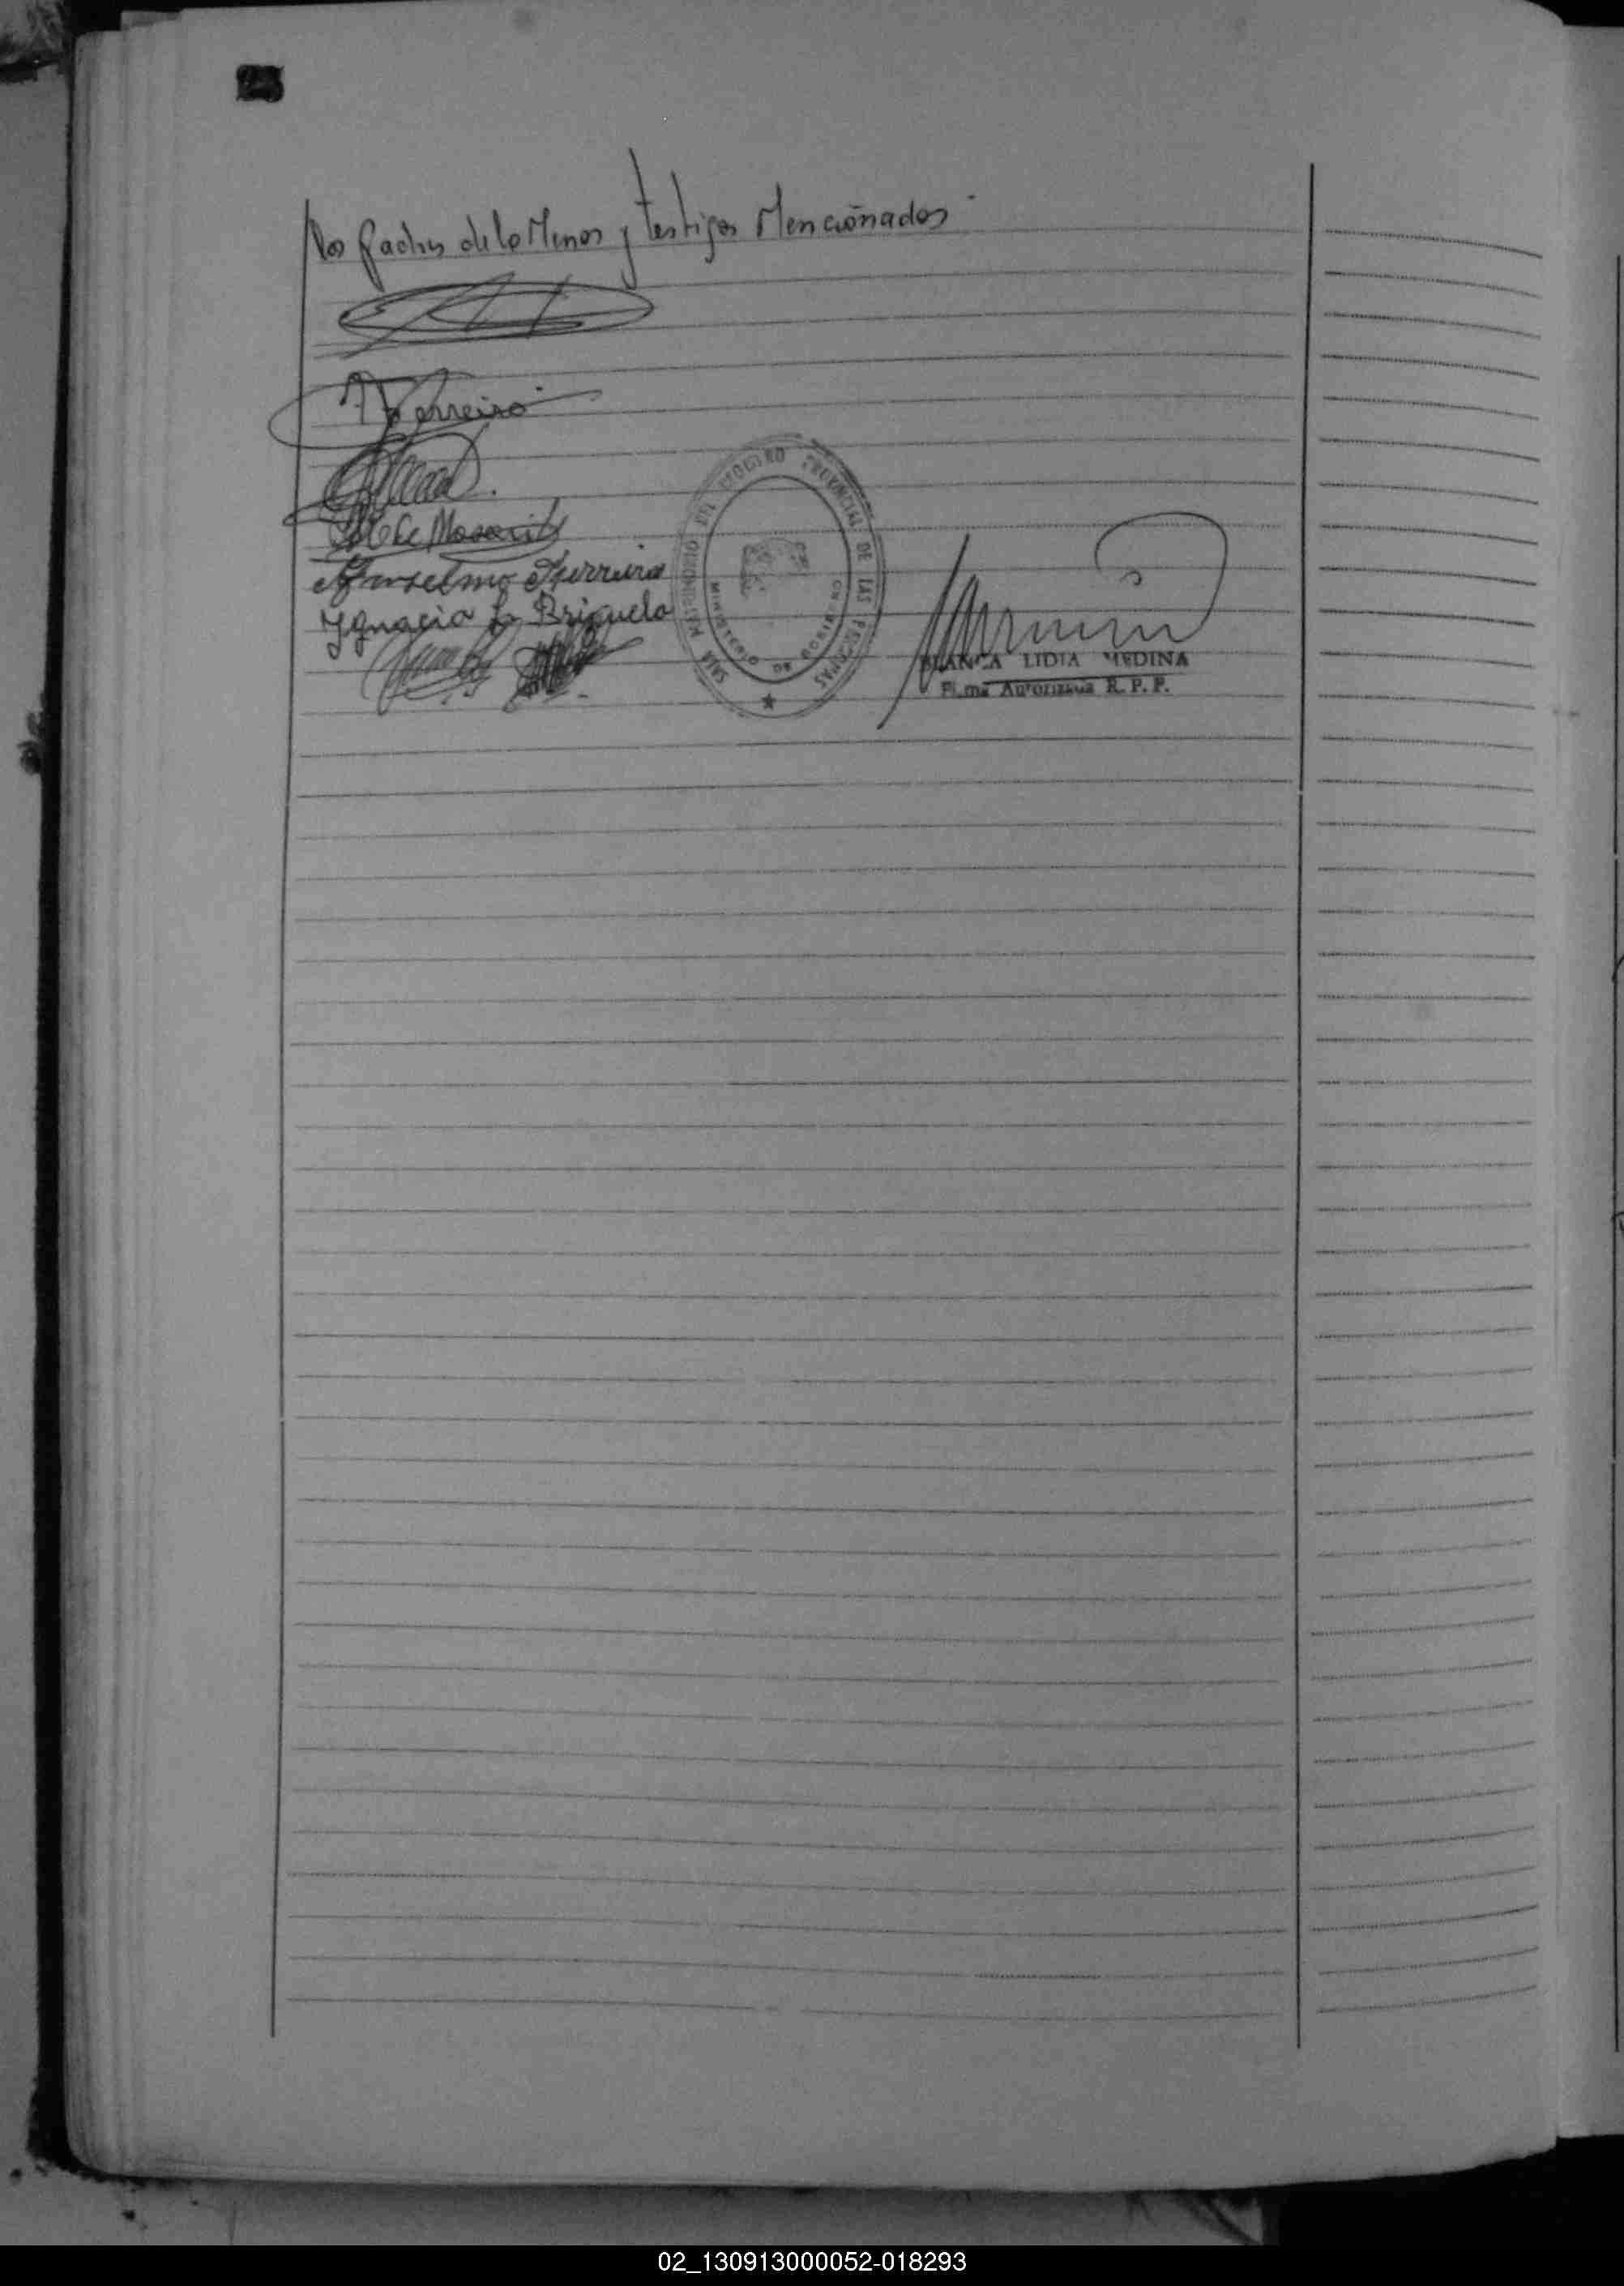 los padres de la Menor y testigos Mencionados
Ferreiro
Anselmo Ferreira
Ygnacia L Brizuela
SALA MATRIMONIO DEL REGISTRO PROVINCIAL DE LAS PERSONAS
MINISTERIO DE GOBIERNO
BLANCA LIDIA MEDINA
Firma Autorizada R. P. P.
02_130913000052-018293